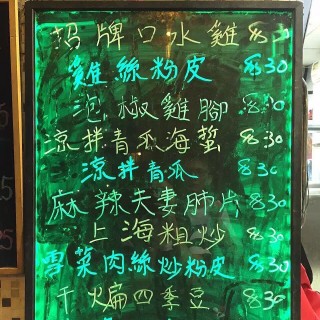 招牌口水雞 $30
雞絲粉皮 $30
泡椒雞腳 $30
涼拌青瓜海蜇 $30
涼拌青瓜 $30
麻辣夫妻肺片 $30
上海粗炒 $30
雪菜肉絲炒粉皮 $30
干煸四季豆 $30